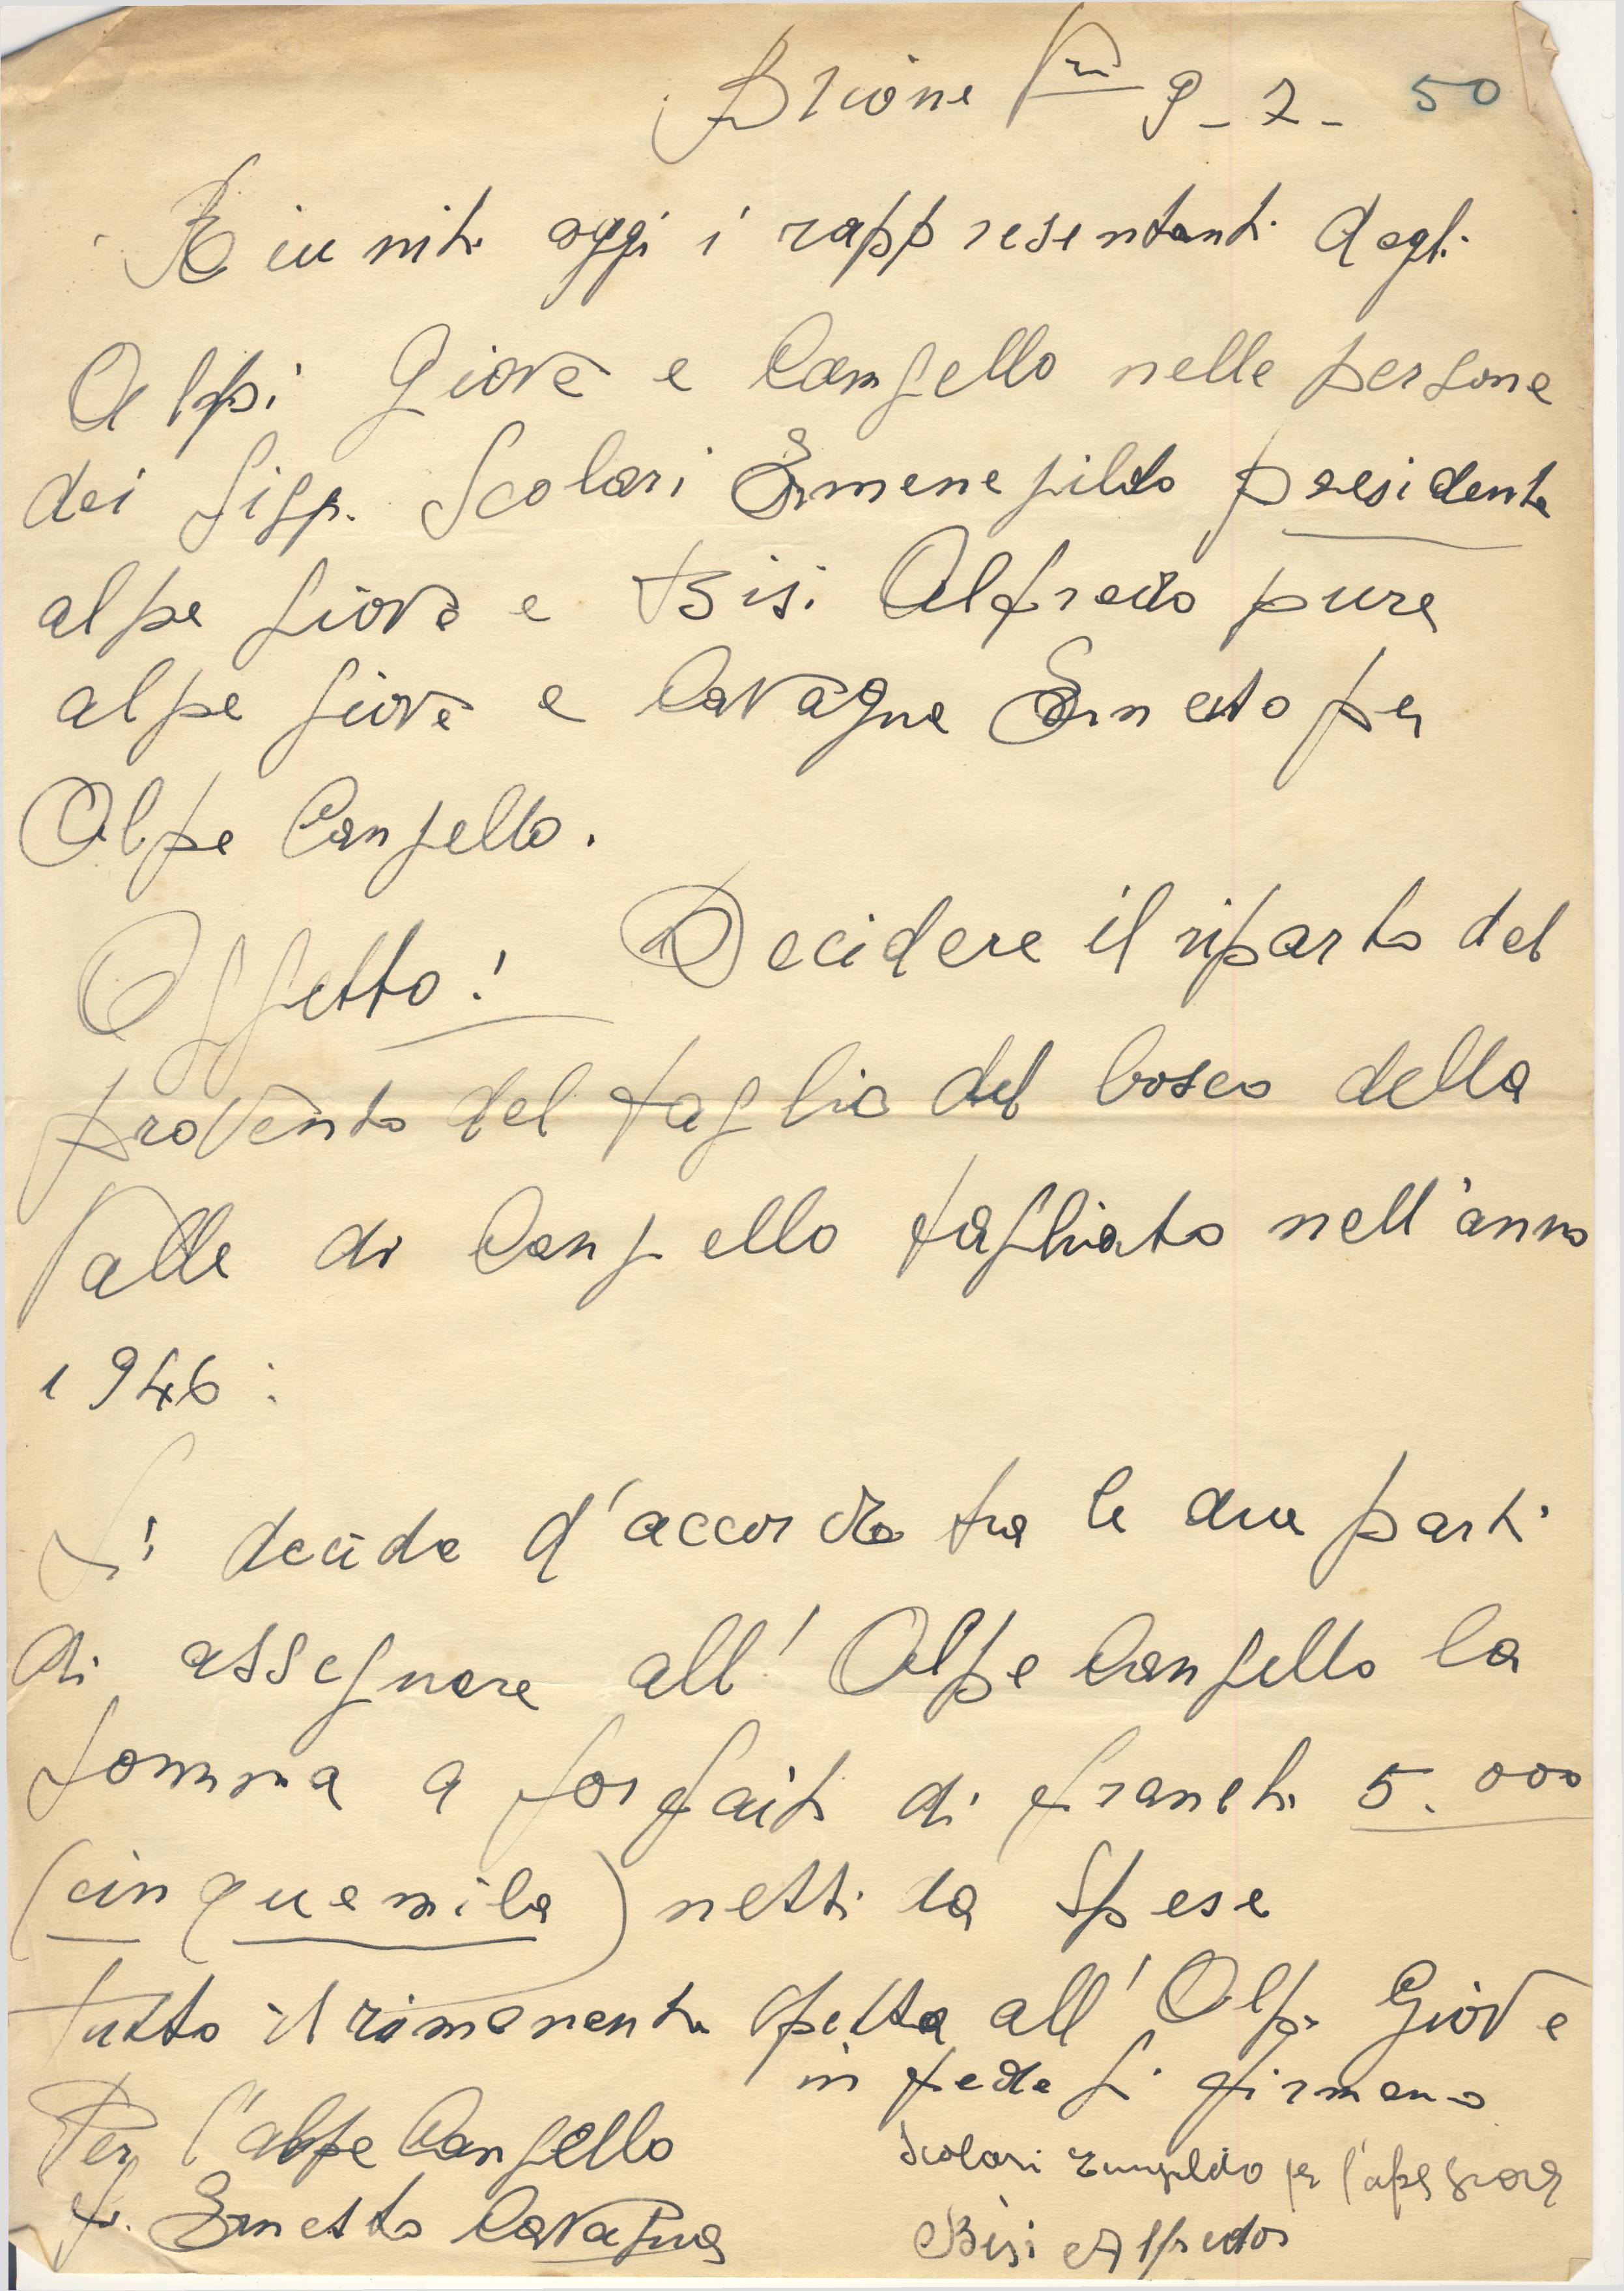 Brione Vza 9-2-50
Riuniti oggi i rappresentanti degli
Alpi Giove e Cangello nelle persone
dei Sigg. Scolari Ermenegildo presidente
alpe Giove e Bisi Alfredo pure
alpe Giove e Cavagna Ernesto per
Alpe Cangello.
Oggetto! Decidere il riparto del
provento del taglio del bosco della
Valle di Cangello tagliato nell'anno
1946:
Si decide d'accordo tra le due parti
di assegnare all'Alpe Cangello la
Somma a forfait di franchi 5.000
(cinquemila) netti da Spese
tutto il rimanente spetta all'Alpe Giove
in fede si firmano
Per l'alpe Cangello
f. Ernesto Cavagna
Scolari per l'alpe giove
Bisi Alfredo